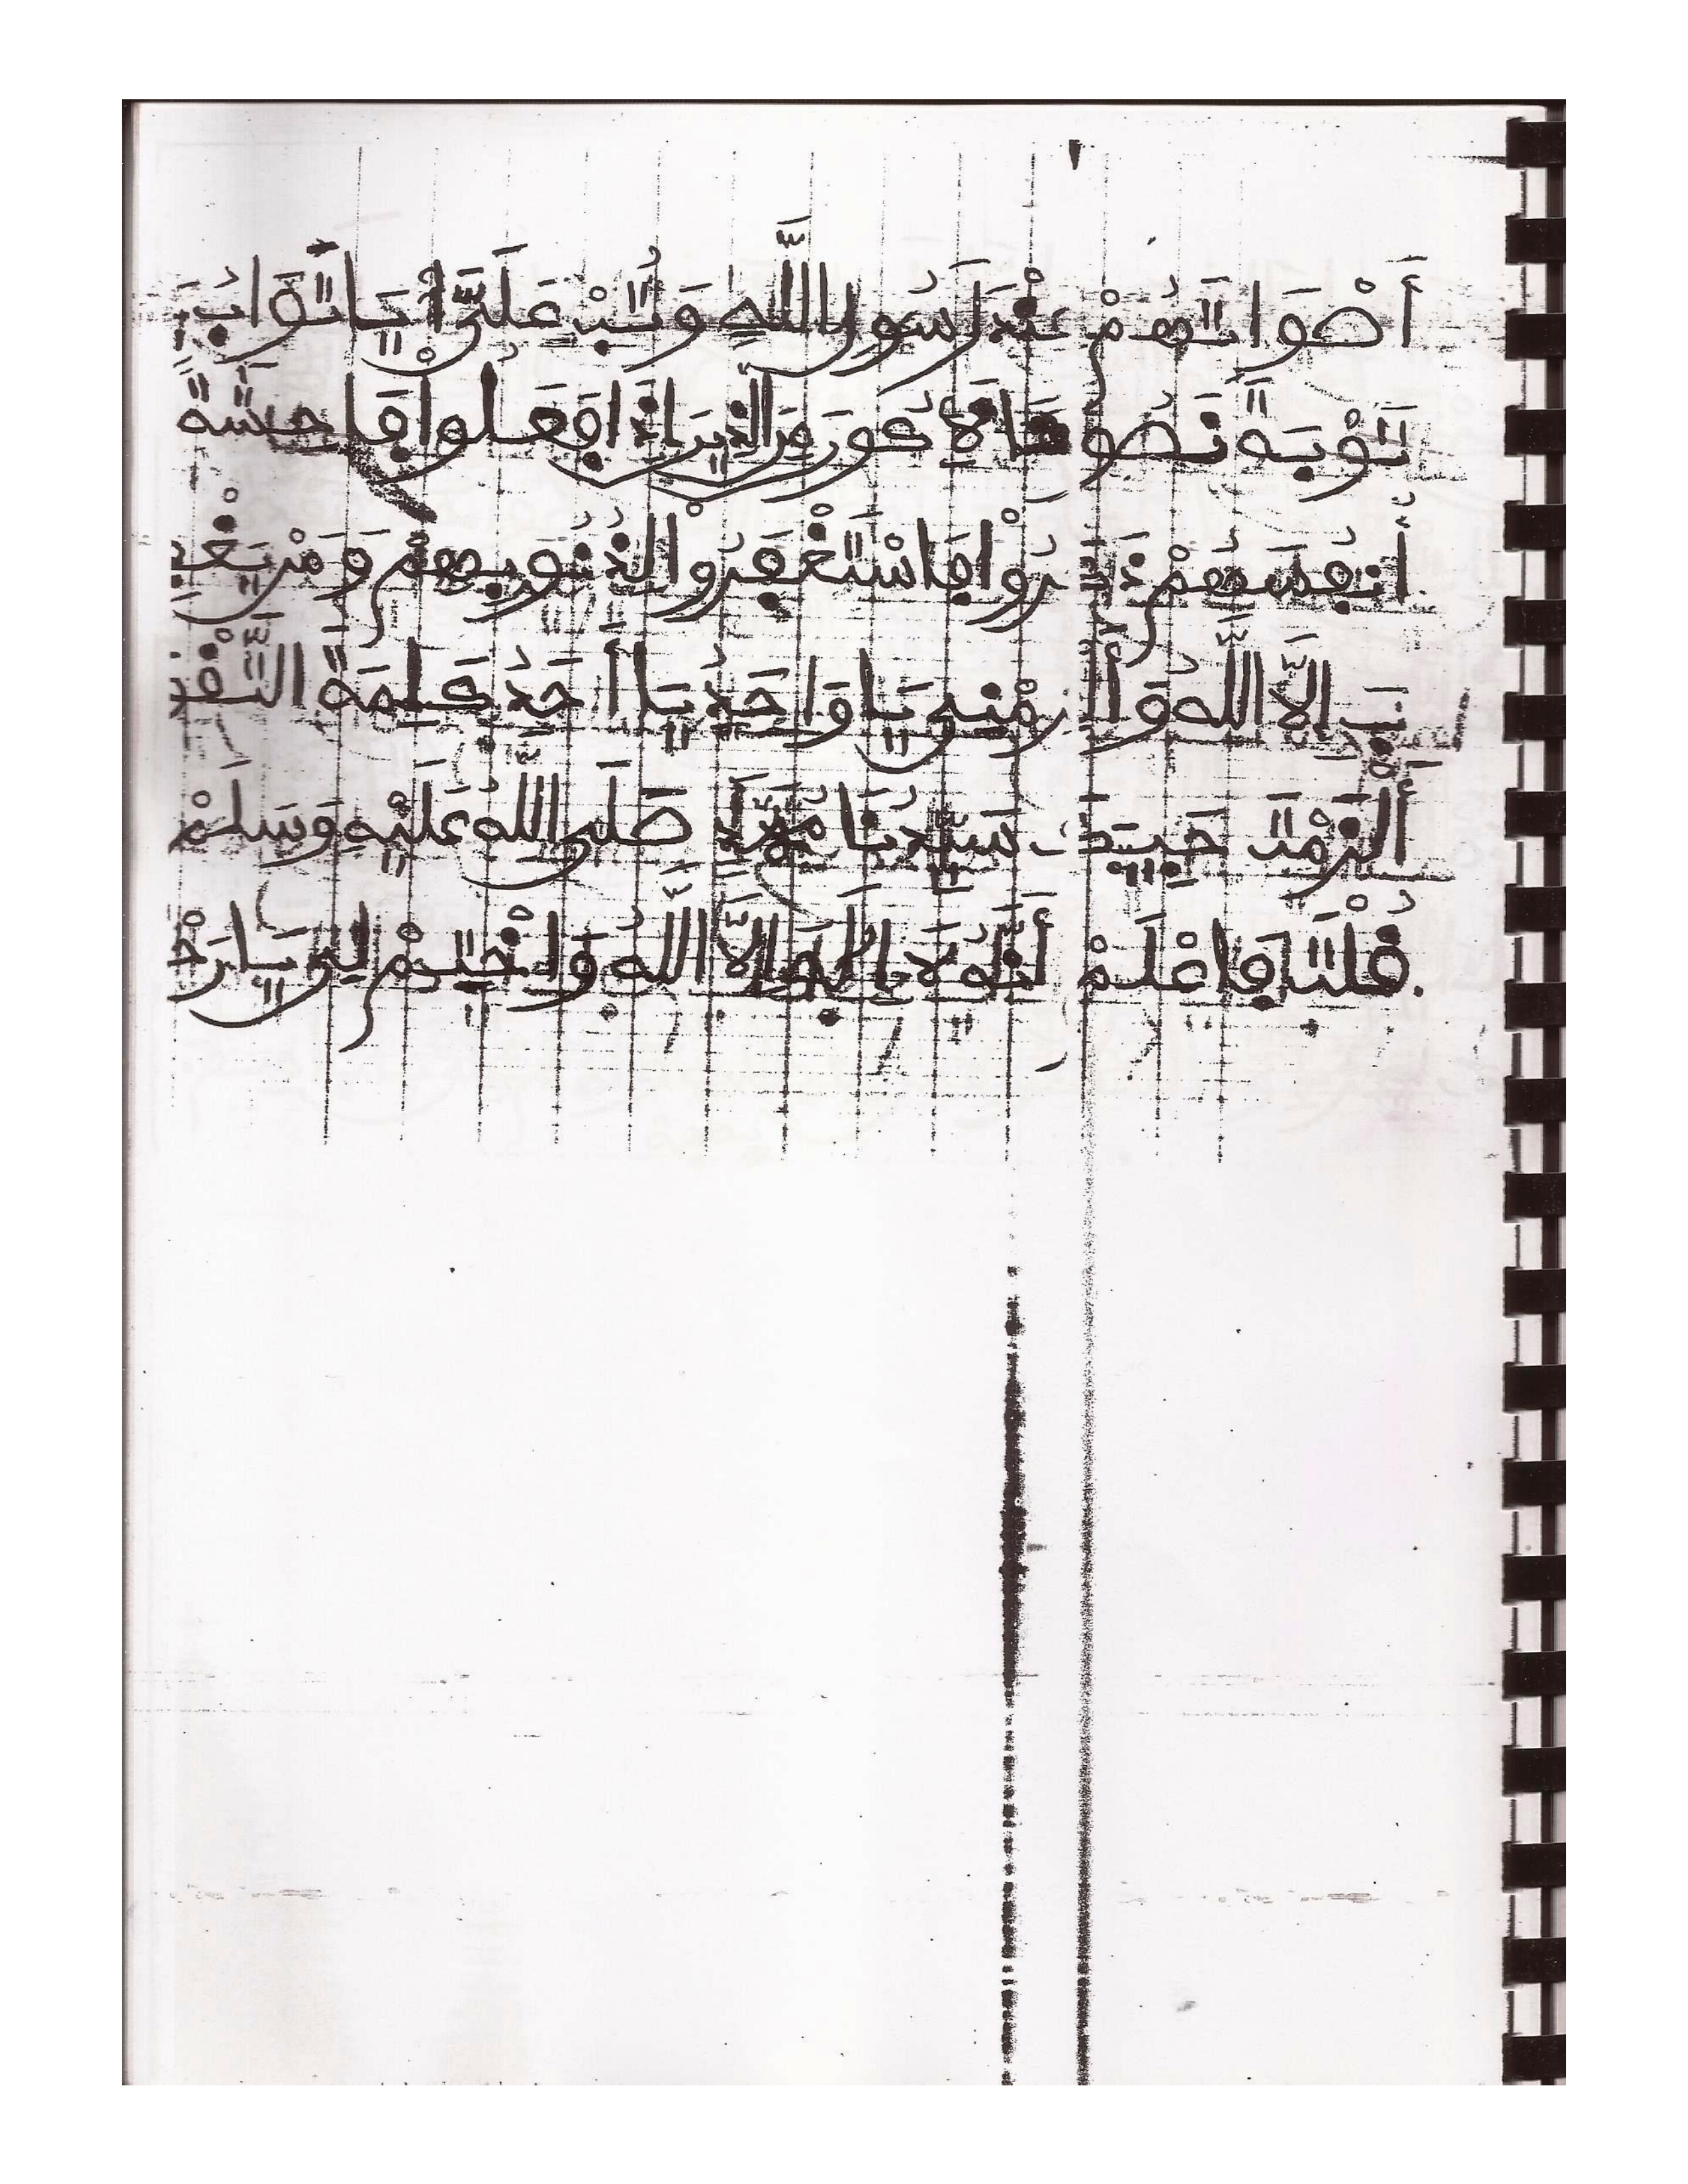 أَصْوَاتَهُمْ عِنْدَ رَسُولِ اللَّهِ وَتُبْ عَلَيَّ يَا تَوَّابُ
تَوْبَةً نَصُوحًا لِأَكُونَ مِنَ الَّذِينَ إِذَا فَعَلُوا فَاحِشَةً
أَنْفُسَهُمْ ذَكَرُوا فَاسْتَغْفَرُوا لِذُنُوبِهِمْ وَمَنْ يَغْفِرُ
إِلَّا اللَّهُ وَأَلْزِمْنِي يَا وَاحِدُ يَا أَحَدُ كَلِمَةَ التَّقْوَى
أَلْزَمْتَ حَبِيبَكَ سَيِّدَنَا مُحَمَّدًا صَلَّى اللَّهُ عَلَيْهِ وَسَلَّمْ
قُلْتَ فَاعْلَمْ أَنَّهُ لَا إِلَهَ إِلَّا اللَّهُ وَاخْتِمْ لِي يَا رَحْ